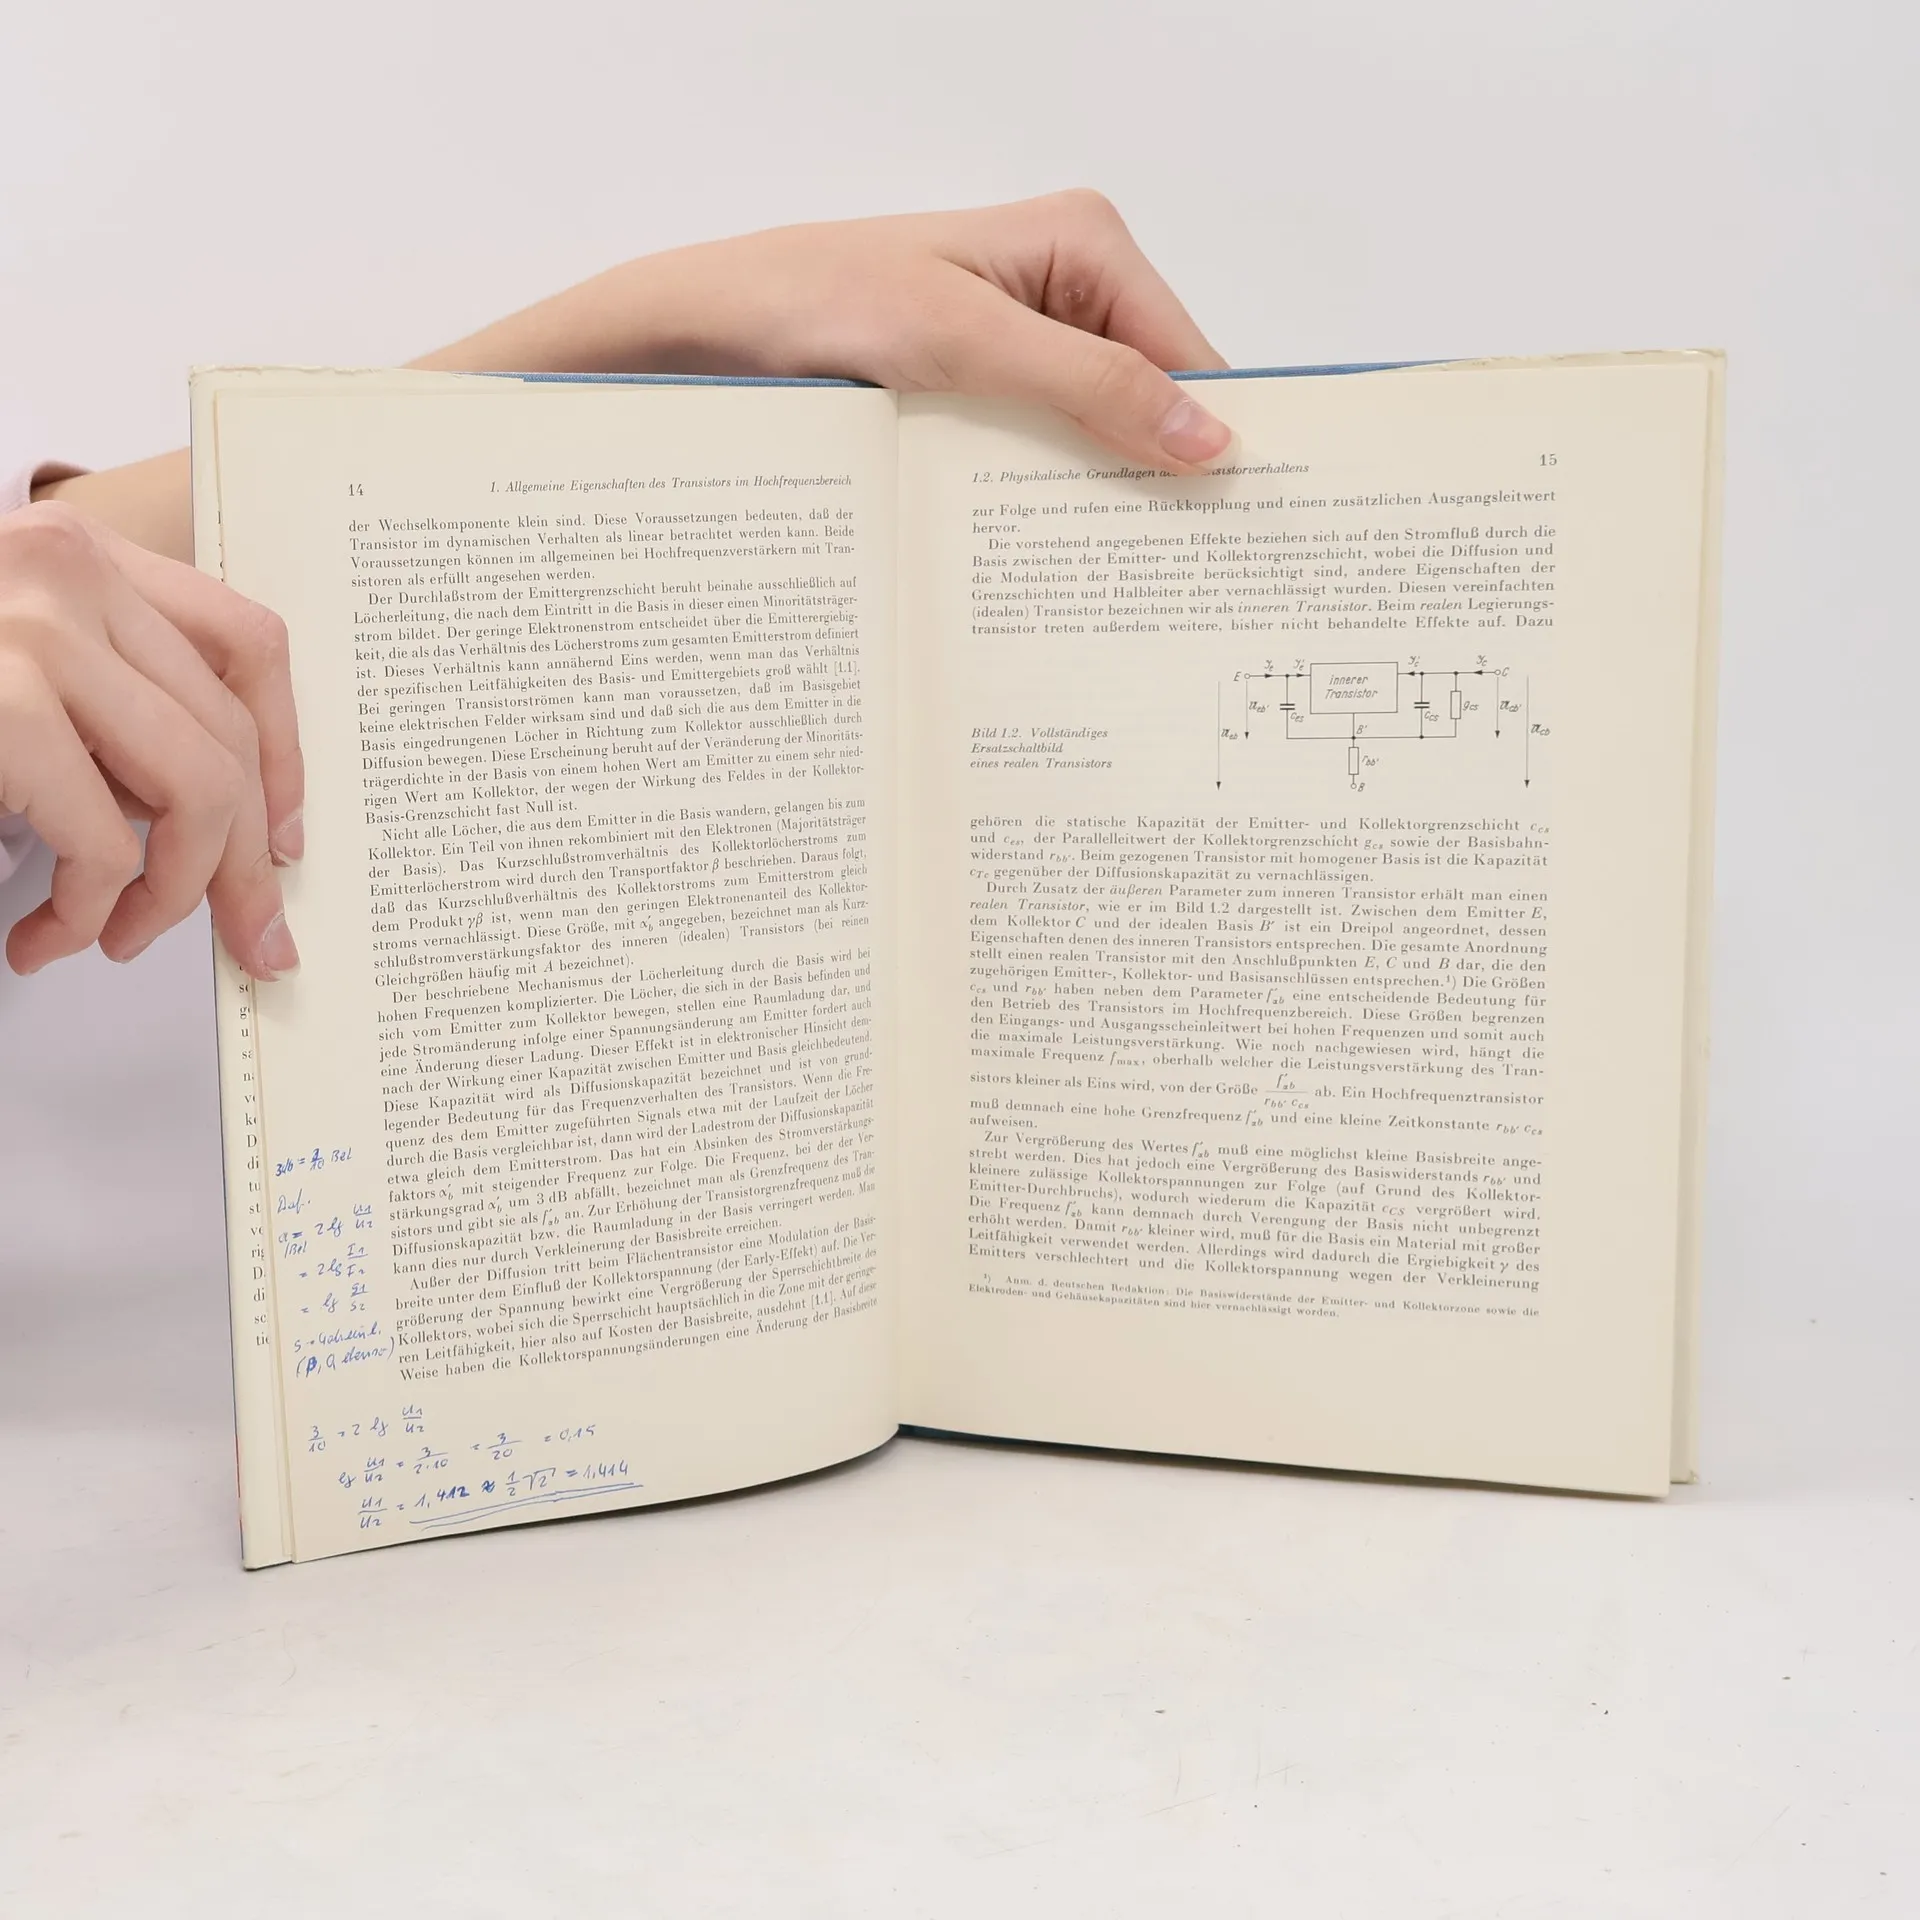 14
1. Allgemeine Eigenschaften des Transistors im Hochfrequenzbereich
der Wechselkomponente klein sind. Diese Voraussetzungen bedeuten, daß der
Transistor im dynamischen Verhalten als linear betrachtet werden kann. Beide
Voraussetzungen können im allgemeinen bei Hochfrequenzverstärkern mit Tran-
sistoren als erfüllt angesehen werden.
Der Durchlaßstrom der Emittergrenzschicht beruht beinahe ausschließlich auf
Löcherleitung, die nach dem Eintritt in die Basis in dieser einen Minoritätsträger-
strom bildet. Der geringe Elektronenstrom entscheidet über die Emitterergiebig-
keit, die als das Verhältnis des Löcherstroms zum gesamten Emitterstrom definiert
ist. Dieses Verhältnis kann annähernd Eins werden, wenn man das Verhältnis
der spezifischen Leitfähigkeiten des Basis- und Emittergebiets groß wählt [1.1].
Bei geringen Transistorströmen kann man voraussetzen, daß im Basisgebiet
keine elektrischen Felder wirksam sind und daß sich die aus dem Emitter in die
Basis eingedrungenen Löcher in Richtung zum Kollektor ausschließlich durch
Diffusion bewegen. Diese Erscheinung beruht auf der Veränderung der Minoritäts-
trägerdichte in der Basis von einem hohen Wert am Emitter zu einem sehr nied-
rigen Wert am Kollektor, der wegen der Wirkung des Feldes in der Kollektor-
Basis-Grenzschicht fast Null ist.
Nicht alle Löcher, die aus dem Emitter in die Basis wandern, gelangen bis zum
Kollektor. Ein Teil von ihnen rekombiniert mit den Elektronen (Majoritätsträger
der Basis). Das Kurzschlußstromverhältnis des Kollektorlöcherstroms zum
Emitterlöcherstrom wird durch den Transportfaktor β beschrieben. Daraus folgt,
daß das Kurzschlußverhältnis des Kollektorstroms zum Emitterstrom gleich
dem Produkt γβ ist, wenn man den geringen Elektronenanteil des Kollektor-
stroms vernachlässigt. Diese Größe, mit α′b angegeben, bezeichnet man als Kurz-
schlußstromverstärkungsfaktor des inneren (idealen) Transistors (bei reinen
Gleichgrößen häufig mit A bezeichnet).
Der beschriebene Mechanismus der Löcherleitung durch die Basis wird bei
hohen Frequenzen komplizierter. Die Löcher, die sich in der Basis befinden und
sich vom Emitter zum Kollektor bewegen, stellen eine Raumladung dar, und
jede Stromänderung infolge einer Spannungsänderung am Emitter fordert auch
eine Änderung dieser Ladung. Dieser Effekt ist in elektronischer Hinsicht dem-
nach der Wirkung einer Kapazität zwischen Emitter und Basis gleichbedeutend.
Diese Kapazität wird als Diffusionskapazität bezeichnet und ist von grund-
legender Bedeutung für das Frequenzverhalten des Transistors. Wenn die Fre-
quenz des dem Emitter zugeführten Signals etwa mit der Laufzeit der Löcher
durch die Basis vergleichbar ist, dann wird der Ladestrom der Diffusionskapazität
etwa gleich dem Emitterstrom. Das hat ein Absinken des Stromverstärkungs-
faktors α′b mit steigender Frequenz zur Folge. Die Frequenz, bei der der Ver-
stärkungsgrad α′b um 3 dB abfällt, bezeichnet man als Grenzfrequenz des Tran-
sistors und gibt sie als f′αb an. Zur Erhöhung der Transistorgrenzfrequenz muß die
Diffusionskapazität bzw. die Raumladung in der Basis verringert werden. Man
kann dies nur durch Verkleinerung der Basisbreite erreichen.
Außer der Diffusion tritt beim Flächentransistor eine Modulation der Basis-
breite unter dem Einfluß der Kollektorspannung (der Early-Effekt) auf. Die Ver-
größerung der Spannung bewirkt eine Vergrößerung der Sperrschichtbreite des
Kollektors, wobei sich die Sperrschicht hauptsächlich in die Zone mit der geringe-
ren Leitfähigkeit, hier also auf Kosten der Basisbreite, ausdehnt [1.1]. Auf diese
Weise haben die Kollektorspannungsänderungen eine Änderung der Basisbreite
3db = 3/10 Bel
Def.
a = 2 lg u1/u2
/Bel
= 2 lg I1/I2
= lg S1/S2
3/10 = 2 lg u1/u2
lg u1/u2 = 3/2·10 = 3/20 = 0,15
u1/u2 = 1,412 ≈ 1/2 √2 = 1,414
1.2. Physikalische Grundlagen
15
zur Folge und rufen eine Rückkopplung und einen zusätzlichen Ausgangsleitwert
hervor.
Die vorstehend angegebenen Effekte beziehen sich auf den Stromfluß durch die
Basis zwischen der Emitter- und Kollektorgrenzschicht, wobei die Diffusion und
die Modulation der Basisbreite berücksichtigt sind, andere Eigenschaften der
Grenzschichten und Halbleiter aber vernachlässigt wurden. Diesen vereinfachten
(idealen) Transistor bezeichnen wir als inneren Transistor. Beim realen Legierungs-
transistor treten außerdem weitere, bisher nicht behandelte Effekte auf. Dazu
E
innerer
Transistor
C
ces
B′
ccs
gcs
rbb′
B
Bild 1.2. Vollständiges
Ersatzschaltbild
eines realen Transistors
gehören die statische Kapazität der Emitter- und Kollektorgrenzschicht ccs
und ces, der Parallelleitwert der Kollektorgrenzschicht gcs sowie der Basisbahn-
widerstand rbb′. Beim gezogenen Transistor mit homogener Basis ist die Kapazität
cTe gegenüber der Diffusionskapazität zu vernachlässigen.
Durch Zusatz der äußeren Parameter zum inneren Transistor erhält man einen
realen Transistor, wie er im Bild 1.2 dargestellt ist. Zwischen dem Emitter E,
dem Kollektor C und der idealen Basis B′ ist ein Dreipol angeordnet, dessen
Eigenschaften denen des inneren Transistors entsprechen. Die gesamte Anordnung
stellt einen realen Transistor mit den Anschlußpunkten E, C und B dar, die den
zugehörigen Emitter-, Kollektor- und Basisanschlüssen entsprechen.¹) Die Größen
ccs und rbb′ haben neben dem Parameter f′αb eine entscheidende Bedeutung für
den Betrieb des Transistors im Hochfrequenzbereich. Diese Größen begrenzen
den Eingangs- und Ausgangsscheinleitwert bei hohen Frequenzen und somit auch
die maximale Leistungsverstärkung. Wie noch nachgewiesen wird, hängt die
maximale Frequenz fmax, oberhalb welcher die Leistungsverstärkung des Tran-
sistors kleiner als Eins wird, von der Größe f′αb/rbb′ ccs ab. Ein Hochfrequenztransistor
muß demnach eine hohe Grenzfrequenz f′αb und eine kleine Zeitkonstante rbb′ ccs
aufweisen.
Zur Vergrößerung des Wertes f′αb muß eine möglichst kleine Basisbreite ange-
strebt werden. Dies hat jedoch eine Vergrößerung des Basiswiderstands rbb′ und
kleinere zulässige Kollektorspannungen zur Folge (auf Grund des Kollektor-
Emitter-Durchbruchs), wodurch wiederum die Kapazität ccs vergrößert wird.
Die Frequenz f′αb kann demnach durch Verengung der Basis nicht unbegrenzt
erhöht werden. Damit rbb′ kleiner wird, muß für die Basis ein Material mit großer
Leitfähigkeit verwendet werden. Allerdings wird dadurch die Ergiebigkeit γ des
Emitters verschlechtert und die Kollektorspannung wegen der Verkleinerung
¹) Anm. d. deutschen Redaktion: Die Basiswiderstände der Emitter- und Kollektorzone sowie die
Elektroden- und Gehäusekapazitäten sind hier vernachlässigt worden.